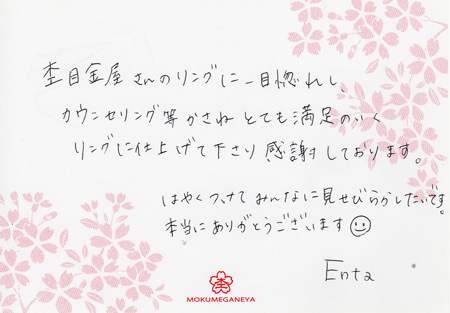 杢目金屋さんのリングに一目惚れし、
カウンセリング等かさねとても満足のいく
リングに仕上げて下さり感謝しております。
はやくつけてみんなに見せびらかしたいです。
本当にありがとうございます
Enta
MOKUMEGANEYA